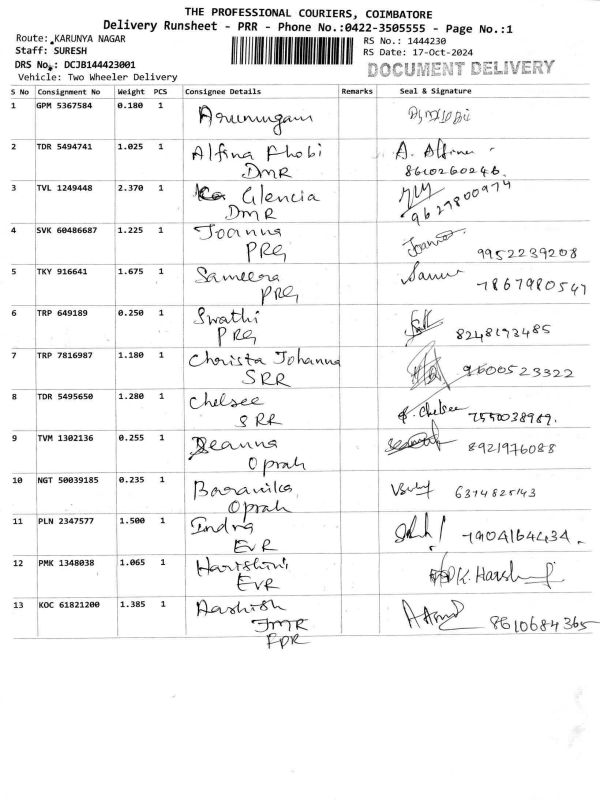 THE PROFESSIONAL COURIERS, COIMBATORE
Delivery Runsheet - PRR - Phone No.:0422-3505555 - Page No.:1
Route: KARUNYA NAGAR RS No.: 1444230
Staff: SURESH RS Date: 17-Oct-2024
DRS No.: DCJB144423001 DOCUMENT DELIVERY
Vehicle: Two Wheeler Delivery
S No Consignment No Weight PCS Consignee Details Remarks Seal & Signature
1 GPM 5367584 0.180 1 Arumugam
2 TDR 5494741 1.025 1 Alfina Fhobi A. Alfina
DMR 8610260246.
3 TVL 1249448 2.370 1 Glencia
DMR 9629800974
4 SVK 60486687 1.225 1 Joanna Joanna
PRG 9952239208
5 TKY 916641 1.675 1 Sameera
PRG 7867980547
6 TRP 649189 0.250 1 Swathi
PRG 8248193485
7 TRP 7816987 1.180 1 Christa Johanna 9600523322
SRR
8 TDR 5495650 1.280 1 Chelsee Chelsee 7550038989.
SRR
9 TVM 1302136 0.255 1 Deanna 8921976088
Oprah
10 NGT 50039185 0.235 1 6374825143
Oprah
11 PLN 2347577 1.500 1 Indra
EVR 7904164434.
12 PMK 1348038 1.065 1 Harishini K. Harshini
EVR
13 KOC 61821200 1.385 1 Aashish
JMR 8610684365
FPR